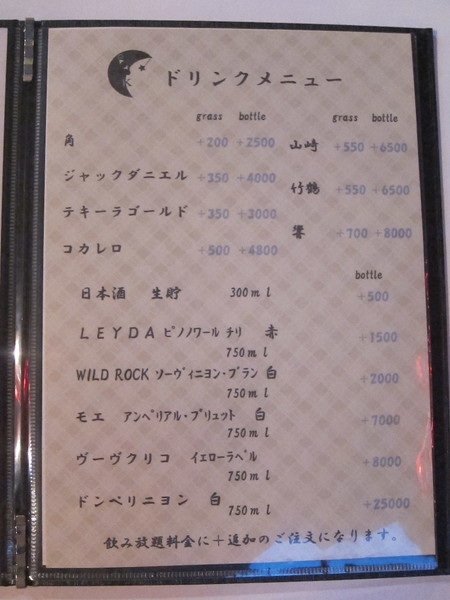 ドリンクメニュー
grass bottle
角 +200 +2500
ジャックダニエル +350 +4000
テキーラゴールド +350 +3000
コカレロ +500 +4800
grass bottle
山崎 +550 +6500
竹鶴 +550 +6500
響 +700 +8000
bottle
日本酒 生貯 300ml +500
LEYDA ピノノワール チリ 赤 +1500
750ml
WILD ROCK ソーヴィニヨン・ブラン 白 +2000
750ml
モエ アンペリアル・ブリュット 白 +7000
750ml
ヴーヴクリコ イエローラベル +8000
750ml
ドンペリニヨン 白 +25000
750ml
飲み放題料金に+追加のご注文になります。